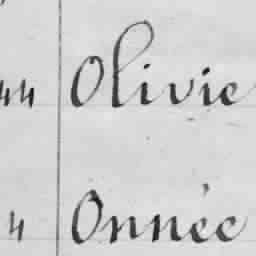 44 Olivie
4 Onnée